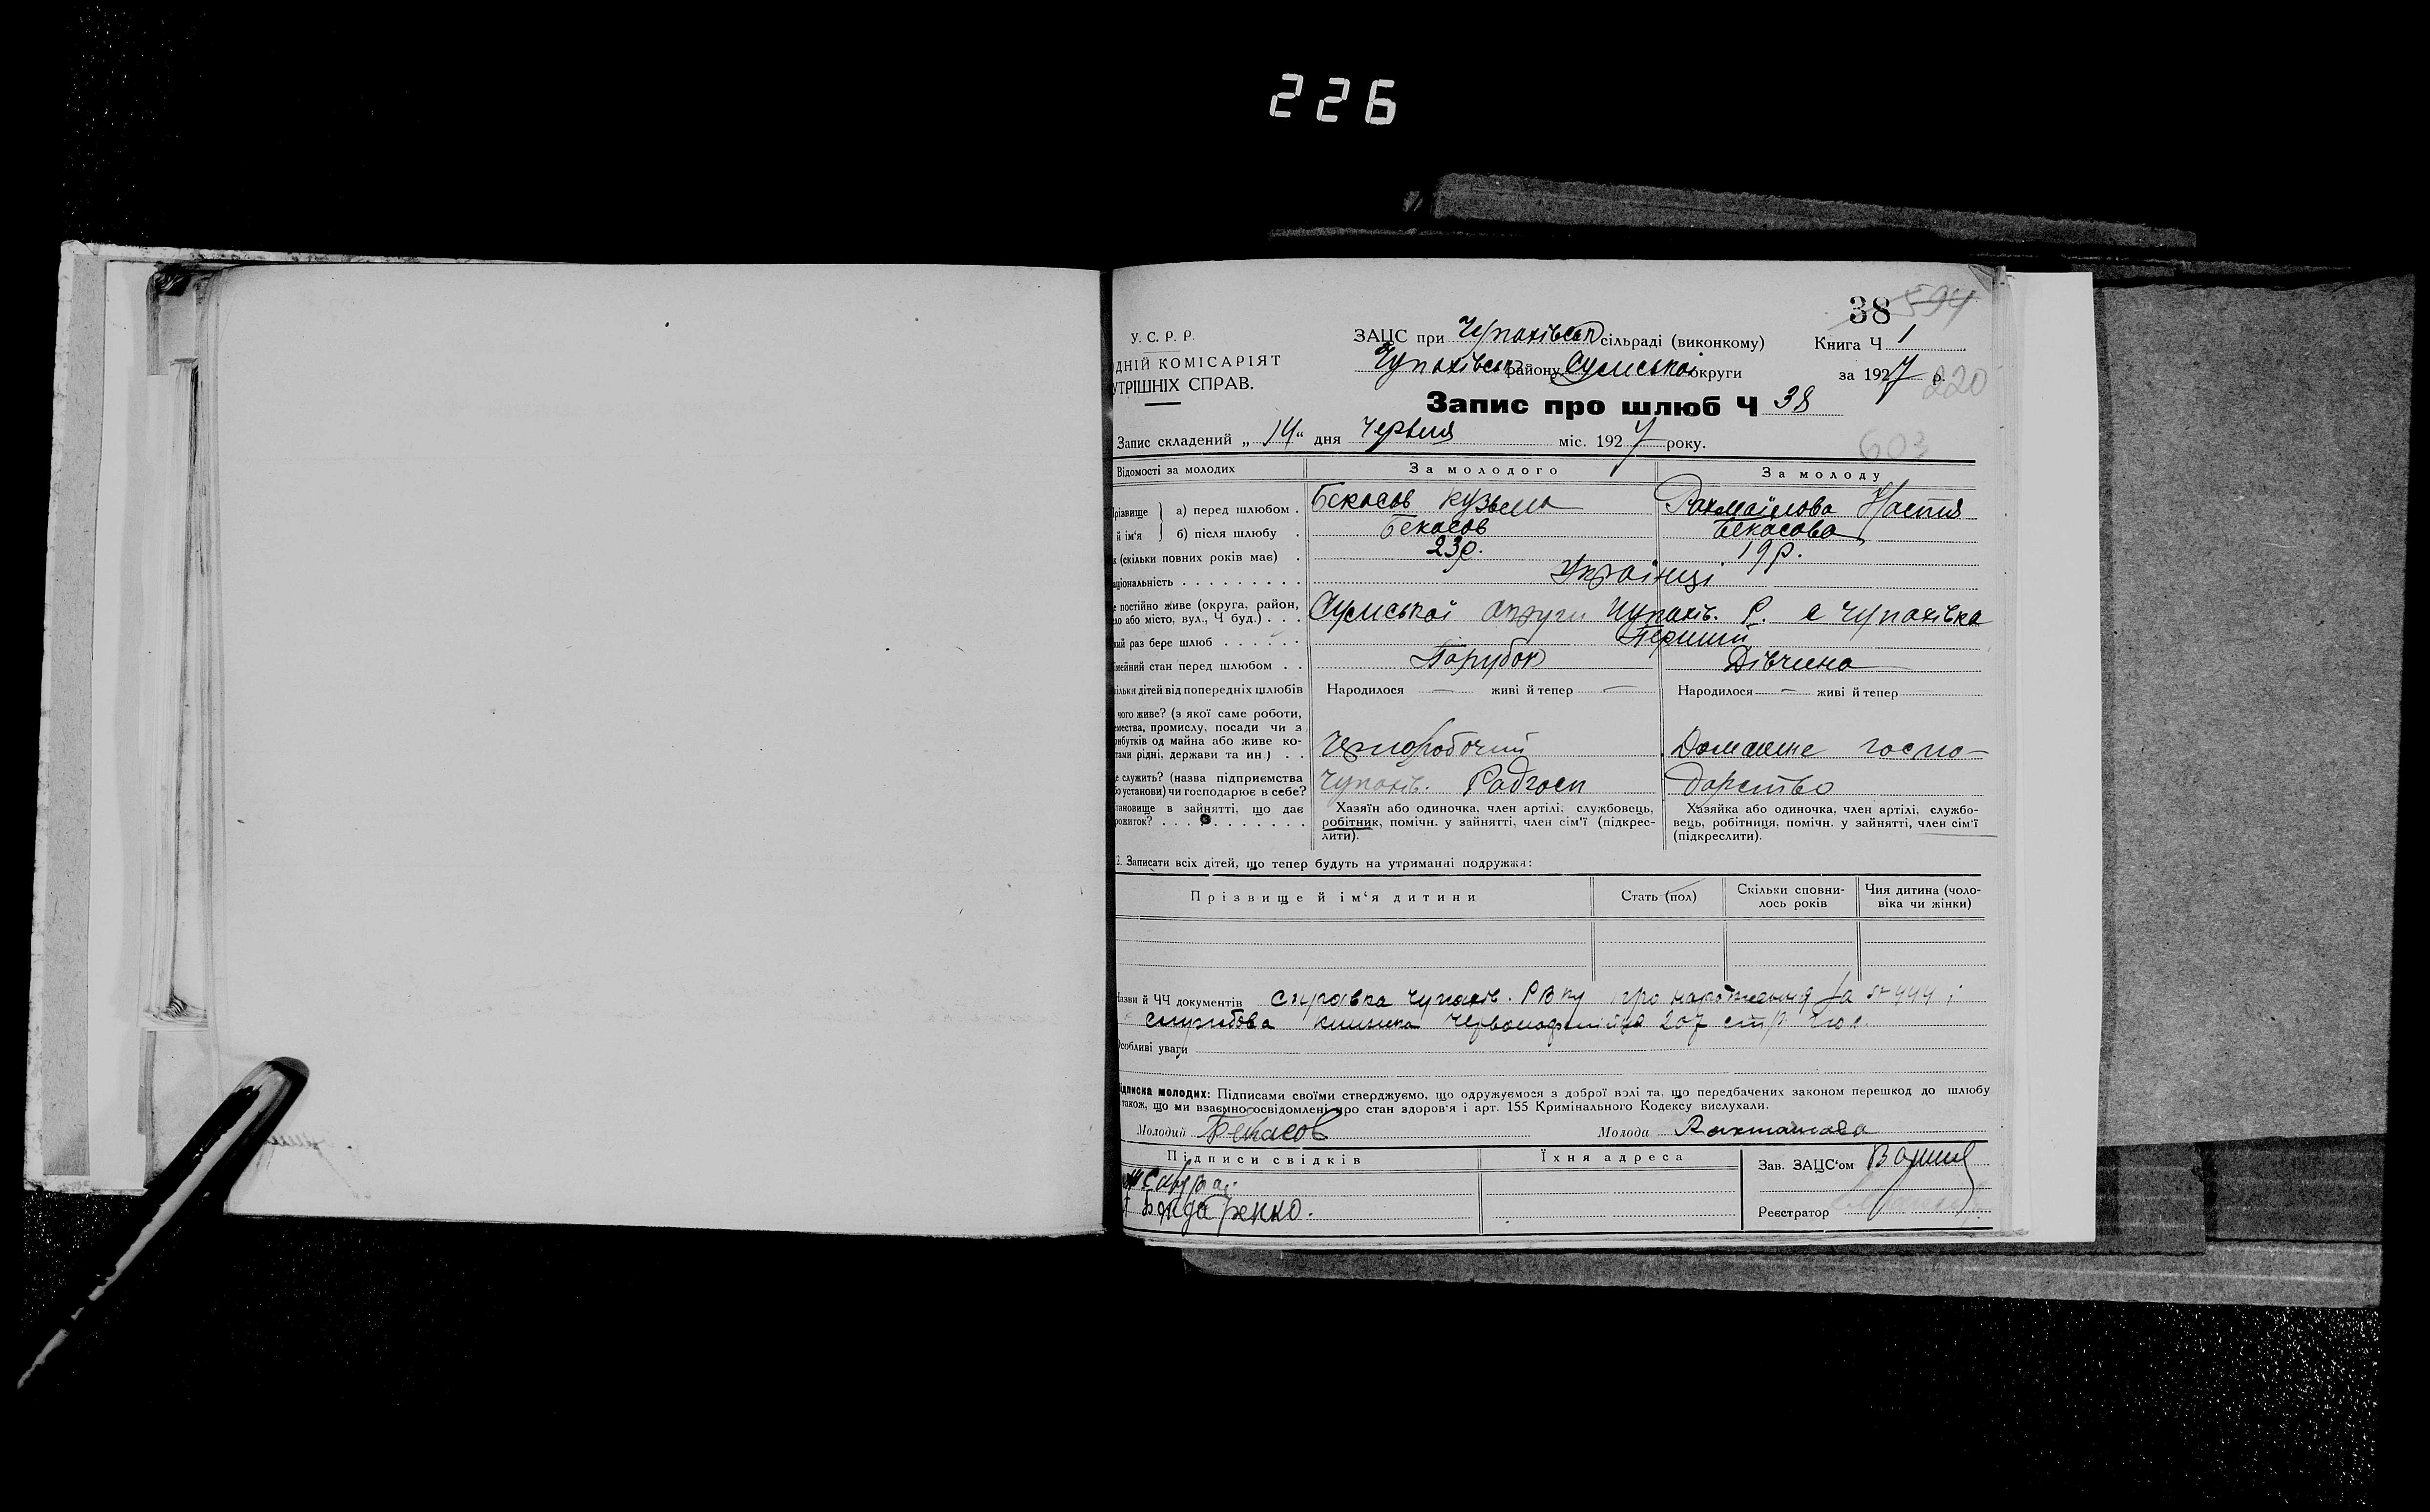 226
38 594
У. С. Р. Р. ЗАЦС при Чупахівськ сільраді (виконкому) Книга Ч 1
ДНІЙ КОМІСАРІЯТ Чупахівськ району Сумської округи за 1927 р. 220
УТРІШНІХ СПРАВ.
Запис про шлюб Ч 38
Запис складений „14“ дня Червня міс. 1927 року.
603
Відомості за молодих За молодого За молоду
різвище а) перед шлюбом . Бекасов Кузьма Настя
й ім'я б) після шлюбу . Бекасов Бекасова
к (скільки повних років має) . 23р. 19р.
аціональність . . . . . . . . . Українці
е постійно живе (округа, район,
ло або місто, вул., Ч буд.) . . . Сумської округи Чупахів. Р. с Чупахівка
кий раз бере шлюб . . . . . . Перший
імейний стан перед шлюбом . . Парубок Дівчина
ільки дітей від попередніх шлюбів Народилося — живі й тепер — Народилося — живі й тепер
чого живе? (з якої саме роботи,
емества, промислу, посади чи з
ибутків од майна або живе ко-
тами рідні, держави та ин.) . . Чернобочий Домашне госпо-
е служить? (назва підприємства
бо установи) чи господарює в себе? Чупахів. Радгосп дарство
тановище в зайнятті, що дає
рожиток? . . . . . . . . . . .
Хазяїн або одиночка, член артілі, службовець, Хазяйка або одиночка, член артілі, службо-
робітник, помічн. у зайнятті, член сім'ї (підкрес- вець, робітниця, помічн. у зайнятті, член сім'ї
лити). (підкреслити).
2. Записати всіх дітей, що тепер будуть на утриманні подружжя:
Прізвище й ім'я дитини Стать (пол) Скільки сповни- Чия дитина (чоло-
лось років віка чи жінки)
Назви й ЧЧ документів справка Чупахів. РВКу про народження за № 444 і
службова книжка 207 стр.
Особливі уваги
ідписка молодих: Підписами своїми стверджуємо, що одружуємося з доброї волі та, що передбачених законом перешкод до шлюбу
також, що ми взаємно освідомлені про стан здоров'я і арт. 155 Кримінального Кодексу вислухали.
Молодий Бекасов Молода
Підписи свідків Їхня адреса Зав. ЗАЦС'ом
Бондаренко. Реєстратор